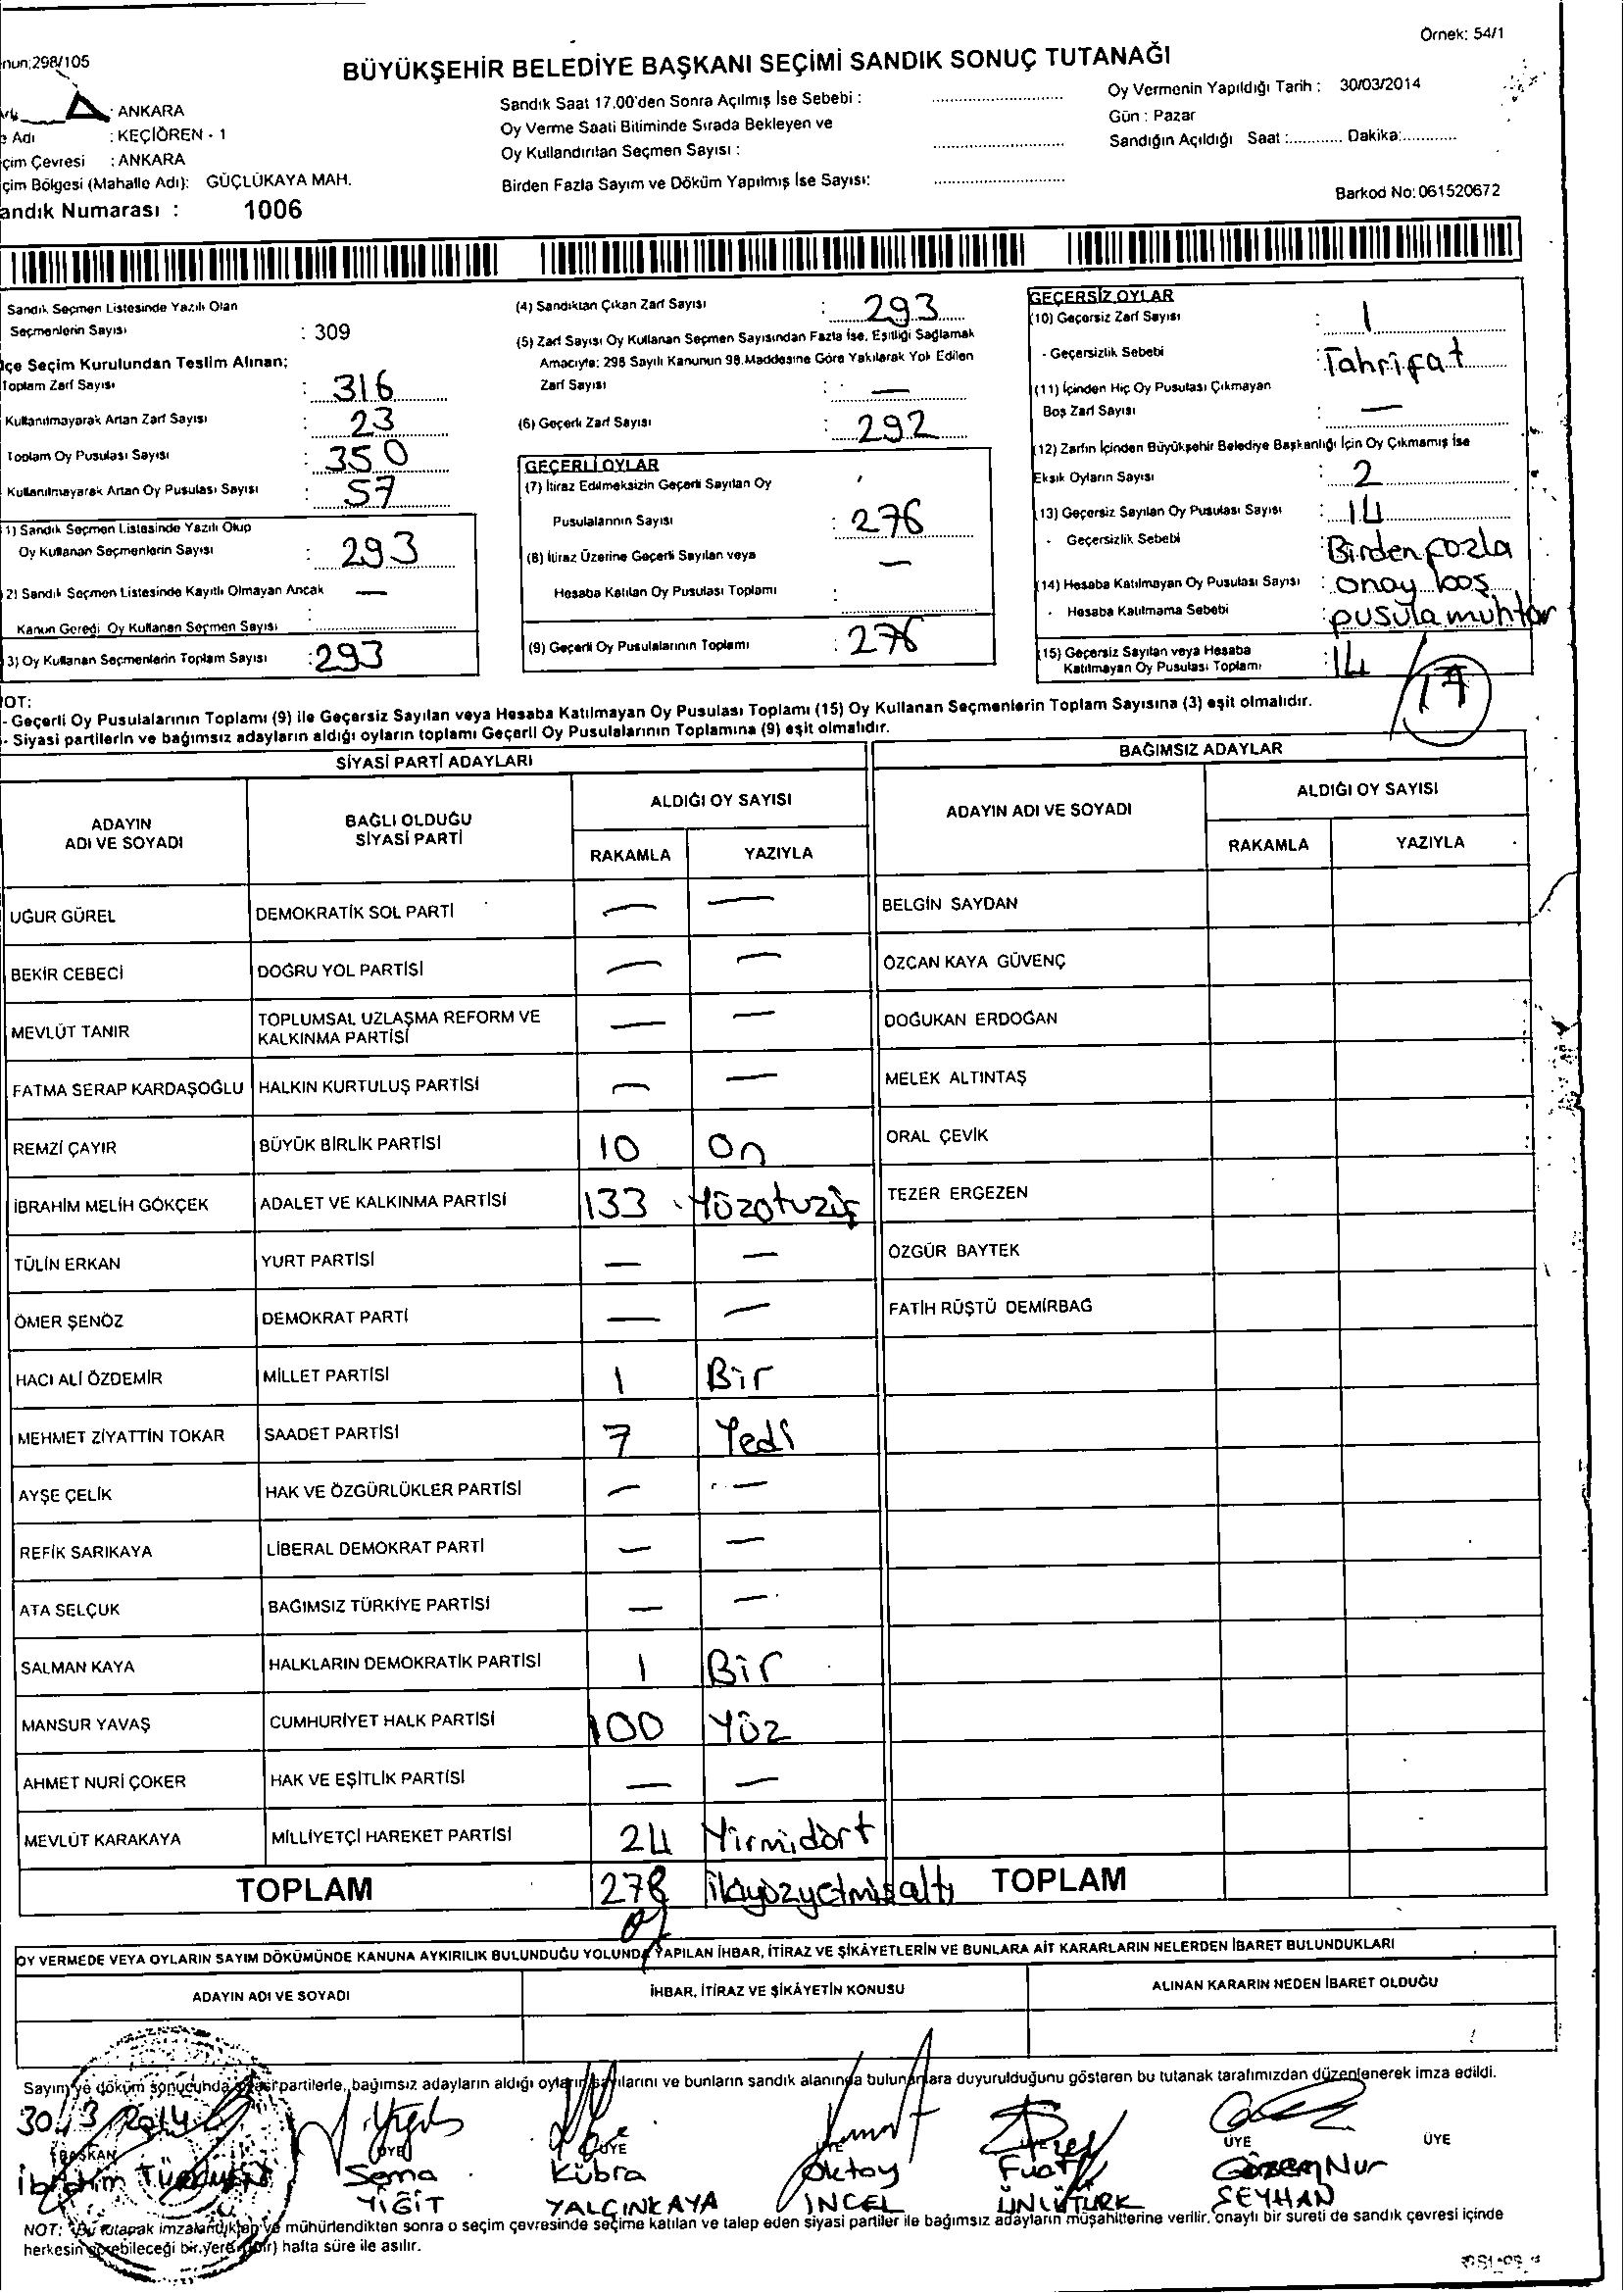 Örnek: 54/1
nun:298/105
BÜYÜKŞEHİR BELEDİYE BAŞKANI SEÇİMİ SANDIK SONUÇ TUTANAĞI
: ANKARA
Adı : KEÇİÖREN - 1
çim Çevresi : ANKARA
çim Bölgesi (Mahalle Adı): GÜÇLÜKAYA MAH.
andık Numarası : 1006
Sandık Saat 17.00'den Sonra Açılmış İse Sebebi :
Oy Verme Saati Bitiminde Sırada Bekleyen ve
Oy Kullandırılan Seçmen Sayısı :
Birden Fazla Sayım ve Döküm Yapılmış İse Sayısı:
Oy Vermenin Yapıldığı Tarih : 30/03/2014
Gün : Pazar
Sandığın Açıldığı Saat :............ Dakika:............
Barkod No: 061520672
Sandık Seçmen Listesinde Yazılı Olan
Seçmenlerin Sayısı : 309
lçe Seçim Kurulundan Teslim Alınan;
Toplam Zarf Sayısı : 316
Kullanılmayarak Artan Zarf Sayısı : 23
Toplam Oy Pusulası Sayısı : 350
Kullanılmayarak Artan Oy Pusulası Sayısı : 57
1) Sandık Seçmen Listesinde Yazılı Olup
Oy Kullanan Seçmenlerin Sayısı : 293
2) Sandık Seçmen Listesinde Kayıtlı Olmayan Ancak —
Kanun Gereği Oy Kullanan Seçmen Sayısı :
3) Oy Kullanan Seçmenlerin Toplam Sayısı : 293
(4) Sandıktan Çıkan Zarf Sayısı : 293
(5) Zarf Sayısı Oy Kullanan Seçmen Sayısından Fazla İse, Eşitliği Sağlamak
Amacıyla; 298 Sayılı Kanunun 98.Maddesine Göre Yakılarak Yok Edilen
Zarf Sayısı : —
(6) Geçerli Zarf Sayısı : 292
GEÇERLİ OYLAR
(7) İtiraz Edilmeksizin Geçerli Sayılan Oy
Pusulalarının Sayısı : 276
(8) İtiraz Üzerine Geçerli Sayılan veya —
Hesaba Katılan Oy Pusulası Toplamı :
(9) Geçerli Oy Pusulalarının Toplamı : 276
GEÇERSİZ OYLAR
(10) Geçersiz Zarf Sayısı : 1
- Geçersizlik Sebebi : Tahrifat
(11) İçinden Hiç Oy Pusulası Çıkmayan
Boş Zarf Sayısı : —
(12) Zarfın İçinden Büyükşehir Belediye Başkanlığı İçin Oy Çıkmamış İse
Eksik Oyların Sayısı : 2
(13) Geçersiz Sayılan Oy Pusulası Sayısı : 14
- Geçersizlik Sebebi : Birden fazla
(14) Hesaba Katılmayan Oy Pusulası Sayısı : onay boş
- Hesaba Katılmama Sebebi : pusula muhtar
(15) Geçersiz Sayılan veya Hesaba
Katılmayan Oy Pusulası Toplamı : 14 / 17
NOT:
- Geçerli Oy Pusulalarının Toplamı (9) ile Geçersiz Sayılan veya Hesaba Katılmayan Oy Pusulası Toplamı (15) Oy Kullanan Seçmenlerin Toplam Sayısına (3) eşit olmalıdır.
- Siyasi partilerin ve bağımsız adayların aldığı oyların toplamı Geçerli Oy Pusulalarının Toplamına (9) eşit olmalıdır.
SİYASİ PARTİ ADAYLARI BAĞIMSIZ ADAYLAR
ADAYIN ADI VE SOYADI BAĞLI OLDUĞU SİYASİ PARTİ ALDIĞI OY SAYISI ADAYIN ADI VE SOYADI ALDIĞI OY SAYISI
RAKAMLA YAZIYLA RAKAMLA YAZIYLA
UĞUR GÜREL DEMOKRATİK SOL PARTİ — — BELGİN SAYDAN
BEKİR CEBECİ DOĞRU YOL PARTİSİ — — ÖZCAN KAYA GÜVENÇ
MEVLÜT TANIR TOPLUMSAL UZLAŞMA REFORM VE KALKINMA PARTİSİ — — DOĞUKAN ERDOĞAN
FATMA SERAP KARDAŞOĞLU HALKIN KURTULUŞ PARTİSİ — — MELEK ALTINTAŞ
REMZİ ÇAYIR BÜYÜK BİRLİK PARTİSİ 10 On ORAL ÇEVİK
İBRAHİM MELİH GÖKÇEK ADALET VE KALKINMA PARTİSİ 133 Yüzotuzüç TEZER ERGEZEN
TÜLİN ERKAN YURT PARTİSİ — — ÖZGÜR BAYTEK
ÖMER ŞENÖZ DEMOKRAT PARTİ — — FATİH RÜŞTÜ DEMİRBAĞ
HACI ALİ ÖZDEMİR MİLLET PARTİSİ 1 Bir
MEHMET ZİYATTİN TOKAR SAADET PARTİSİ 7 Yedi
AYŞE ÇELİK HAK VE ÖZGÜRLÜKLER PARTİSİ — —
REFİK SARIKAYA LİBERAL DEMOKRAT PARTİ — —
ATA SELÇUK BAĞIMSIZ TÜRKİYE PARTİSİ — —
SALMAN KAYA HALKLARIN DEMOKRATİK PARTİSİ 1 Bir
MANSUR YAVAŞ CUMHURİYET HALK PARTİSİ 100 Yüz
AHMET NURİ ÇOKER HAK VE EŞİTLİK PARTİSİ — —
MEVLÜT KARAKAYA MİLLİYETÇİ HAREKET PARTİSİ 24 Yirmidört
TOPLAM ikiyüzyetmişaltı TOPLAM
OY VERMEDE VEYA OYLARIN SAYIM DÖKÜMÜNDE KANUNA AYKIRILIK BULUNDUĞU YOLUNDA YAPILAN İHBAR, İTİRAZ VE ŞİKÂYETLERİN VE BUNLARA AİT KARARLARIN NELERDEN İBARET BULUNDUKLARI
ADAYIN ADI VE SOYADI İHBAR, İTİRAZ VE ŞİKÂYETİN KONUSU ALINAN KARARIN NEDEN İBARET OLDUĞU
Sayım ve döküm sonucunda siyasi partilerle, bağımsız adayların aldığı oyların sayılarını ve bunların sandık alanında bulunanlara duyurulduğunu gösteren bu tutanak tarafımızdan düzenlenerek imza edildi.
30.3.2014
BAŞKAN ÜYE ÜYE ÜYE ÜYE ÜYE ÜYE
İbrahim Sema Kübra Oktay Fuat Gözem Nur
YİĞİT YALÇINKAYA İNCEL ÜNLÜTÜRK SEYHAN
NOT: Bu tutanak imzalandıktan ve mühürlendikten sonra o seçim çevresinde seçime katılan ve talep eden siyasi partiler ile bağımsız adayların müşahitlerine verilir, onaylı bir sureti de sandık çevresi içinde
herkesin görebileceği bir yere (bir) hafta süre ile asılır.